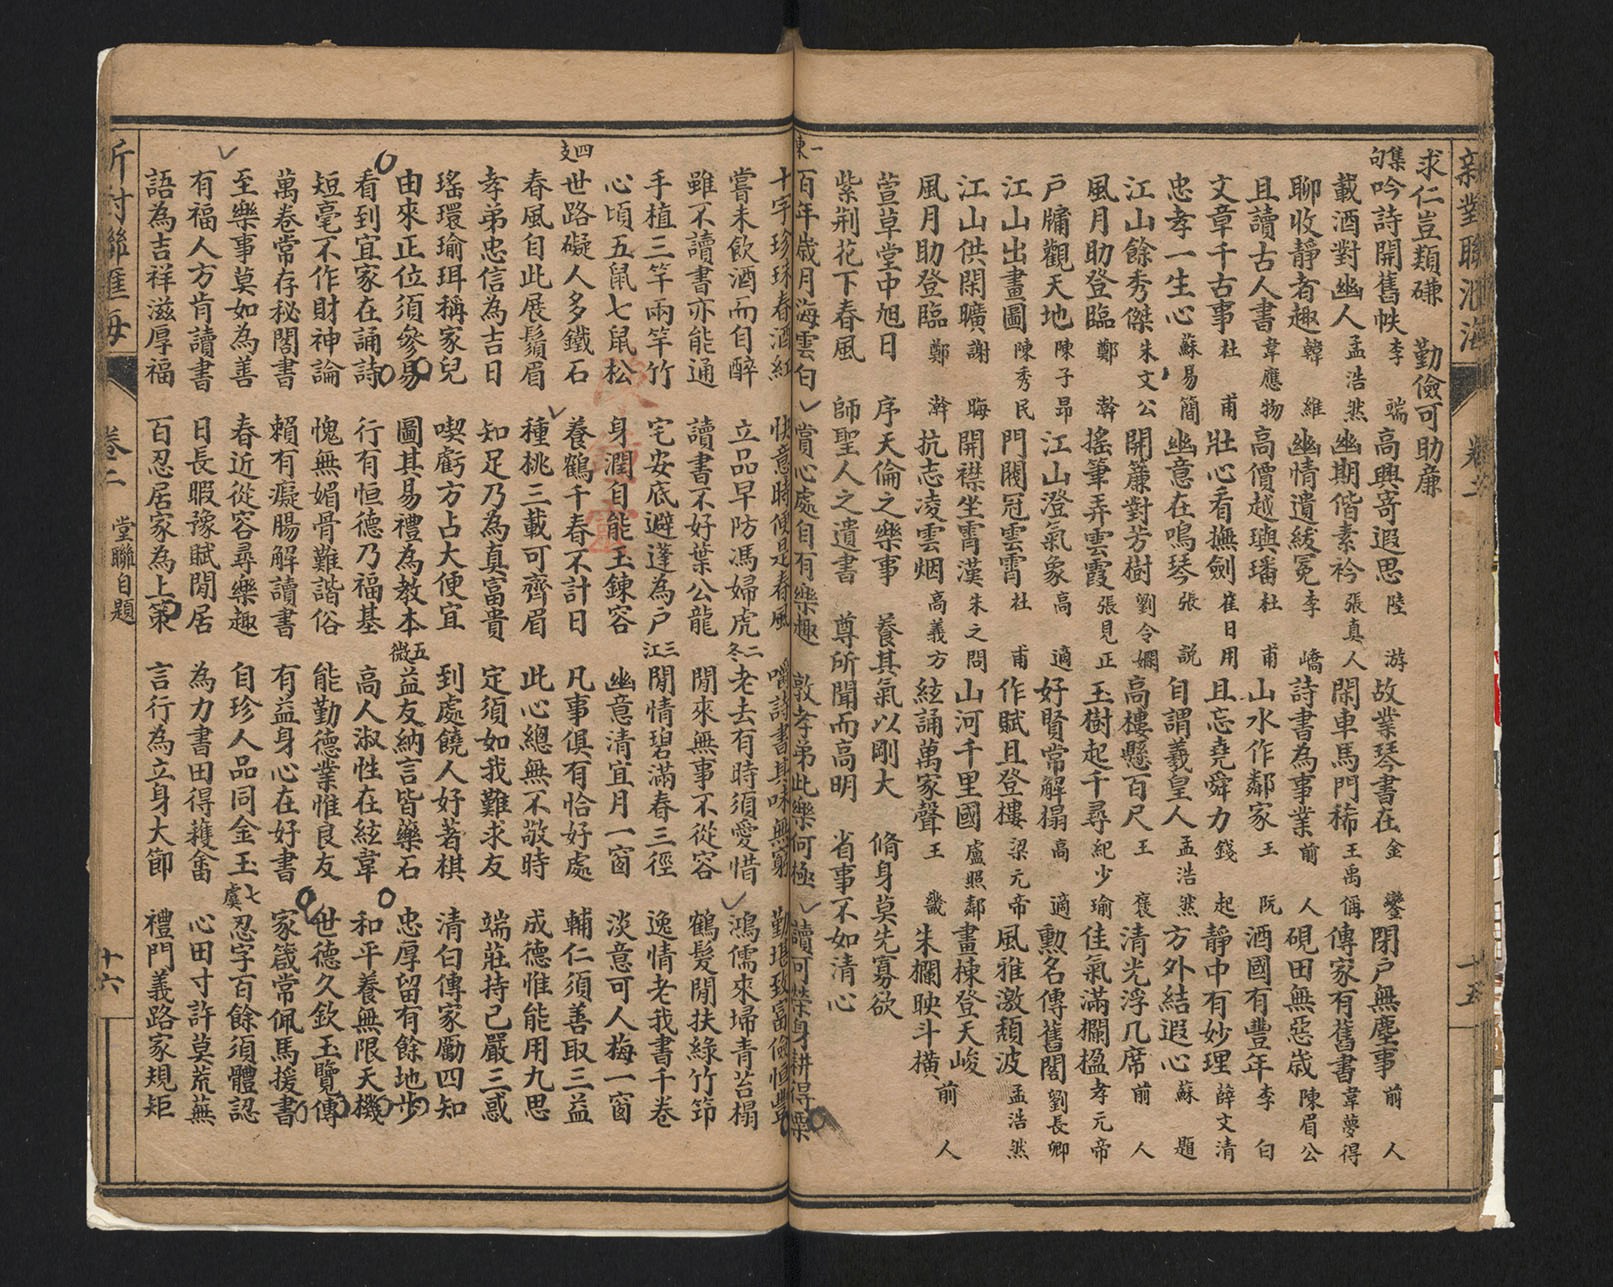 新對聯滙海　卷二　十五
求仁豈類磏　勤儉可助廉
集句　吟詩開舊帙　李端　高興寄遐思　陸游　故業琴書在　金鑾　閉戶無塵事　前人
載酒對幽人　孟浩然　幽期偕素衿　張真人　閑車馬門稀　王禹偁　傳家有舊書　韋夢得
聊收靜者趣　韓維　幽情遺紱冕　李嶠　詩書為事業　前人　硯田無惡歲　陳眉公
且讀古人書　韋應物　高價越璵璠　杜甫　山水作鄰家　王阮　酒國有豐年　李白
文章千古事　杜甫　壯心看撫劍　崔日用　且忘堯舜力　錢起　靜中有妙理　薛文清
忠孝一生心　蘇易簡　幽意在鳴琴　張說　自謂羲皇人　孟浩然　方外結遐心　蘇題
江山餘秀傑　朱文公　開簾對芳樹　劉令嫻　高樓懸百尺　王褒　清光浮几席　前人
風月助登臨　鄭澣　搖筆弄雲霞　張見正　玉樹起千尋　紀少瑜　佳氣滿欄楹　孝元帝
戶牖觀天地　陳子昂　江山澄氣象　高適　好賢常解榻　高適　勲名傳舊閣　劉長卿
江山出畫圖　陳秀民　門閥冠雲霄　杜甫　作賦且登樓　梁元帝　風雅激頹波　孟浩然
江山供閑曠　謝晦　開襟坐霄漢　朱之問　山河千里國　盧照鄰　畫棟登天峻
風月助登臨　鄭澣　抗志凌雲烟　高義方　絃誦萬家聲　王畿　朱欄映斗橫　前人
萱草堂中旭日　序天倫之樂事　養其氣以剛大　脩身莫先寡欲
紫荆花下春風　師聖人之遺書　尊所聞而高明　省事不如清心
一東　百年歲月海雲白　賞心處自有樂趣　敦孝弟此樂何極　讀可榮身耕得粟
十字珍珠春酒紅　快意時便是春風　嚼詩書其味無窮　勤堪致富儉恒豐
嘗未飲酒而自醉　立品早防馮婦虎　二冬　老去有時須愛惜　鴻儒來埽青苔榻
雖不讀書亦能通　讀書不好葉公龍　閒來無事不從容　鶴髮閒扶綠竹筇
手植三竿兩竿竹　宅安底避蓬為戶　三江　閒情碧滿春三徑　逸情老我書千卷
心頃五鼠七鼠松　身潤自能玉鍊容　幽意清宜月一窗　淡意可人梅一窗
四支　世路礙人多鐵石　養鶴千春不計日　凡事俱有恰好處　輔仁須善取三益
春風自此展鬚眉　種桃三載可齊眉　此心總無不敬時　成德惟能用九思
孝弟忠信為吉日　知足乃為真富貴　定須如我難求友　端莊持己嚴三惑
瑤環瑜珥稱家兒　喫虧方占大便宜　到處饒人好著棋　清白傳家勵四知
由來正位須參易　圖其易禮為教本　五微　益友納言皆藥石　忠厚留有餘地步
看到宜家在誦詩　行有恒德乃福基　高人淑性在絃韋　和平養無限天機
短毫不作財神論　愧無媚骨難諧俗　能勤德業惟良友　世德久欽玉覽傳
萬卷常存秘閣書　賴有癡腸解讀書　有益身心在好書　家箴常佩馬援書
至樂事莫如為善　春近從容尋樂趣　自珍人品同金玉　七虞　忍字百餘須體認
有福人方肯讀書　日長暇豫賦閒居　為力書田得穫畬　心田寸許莫荒蕪
語為吉祥滋厚福　百忍居家為上策　言行為立身大節　禮門義路家規矩
新對聯滙海　卷二　堂聯自題　十六